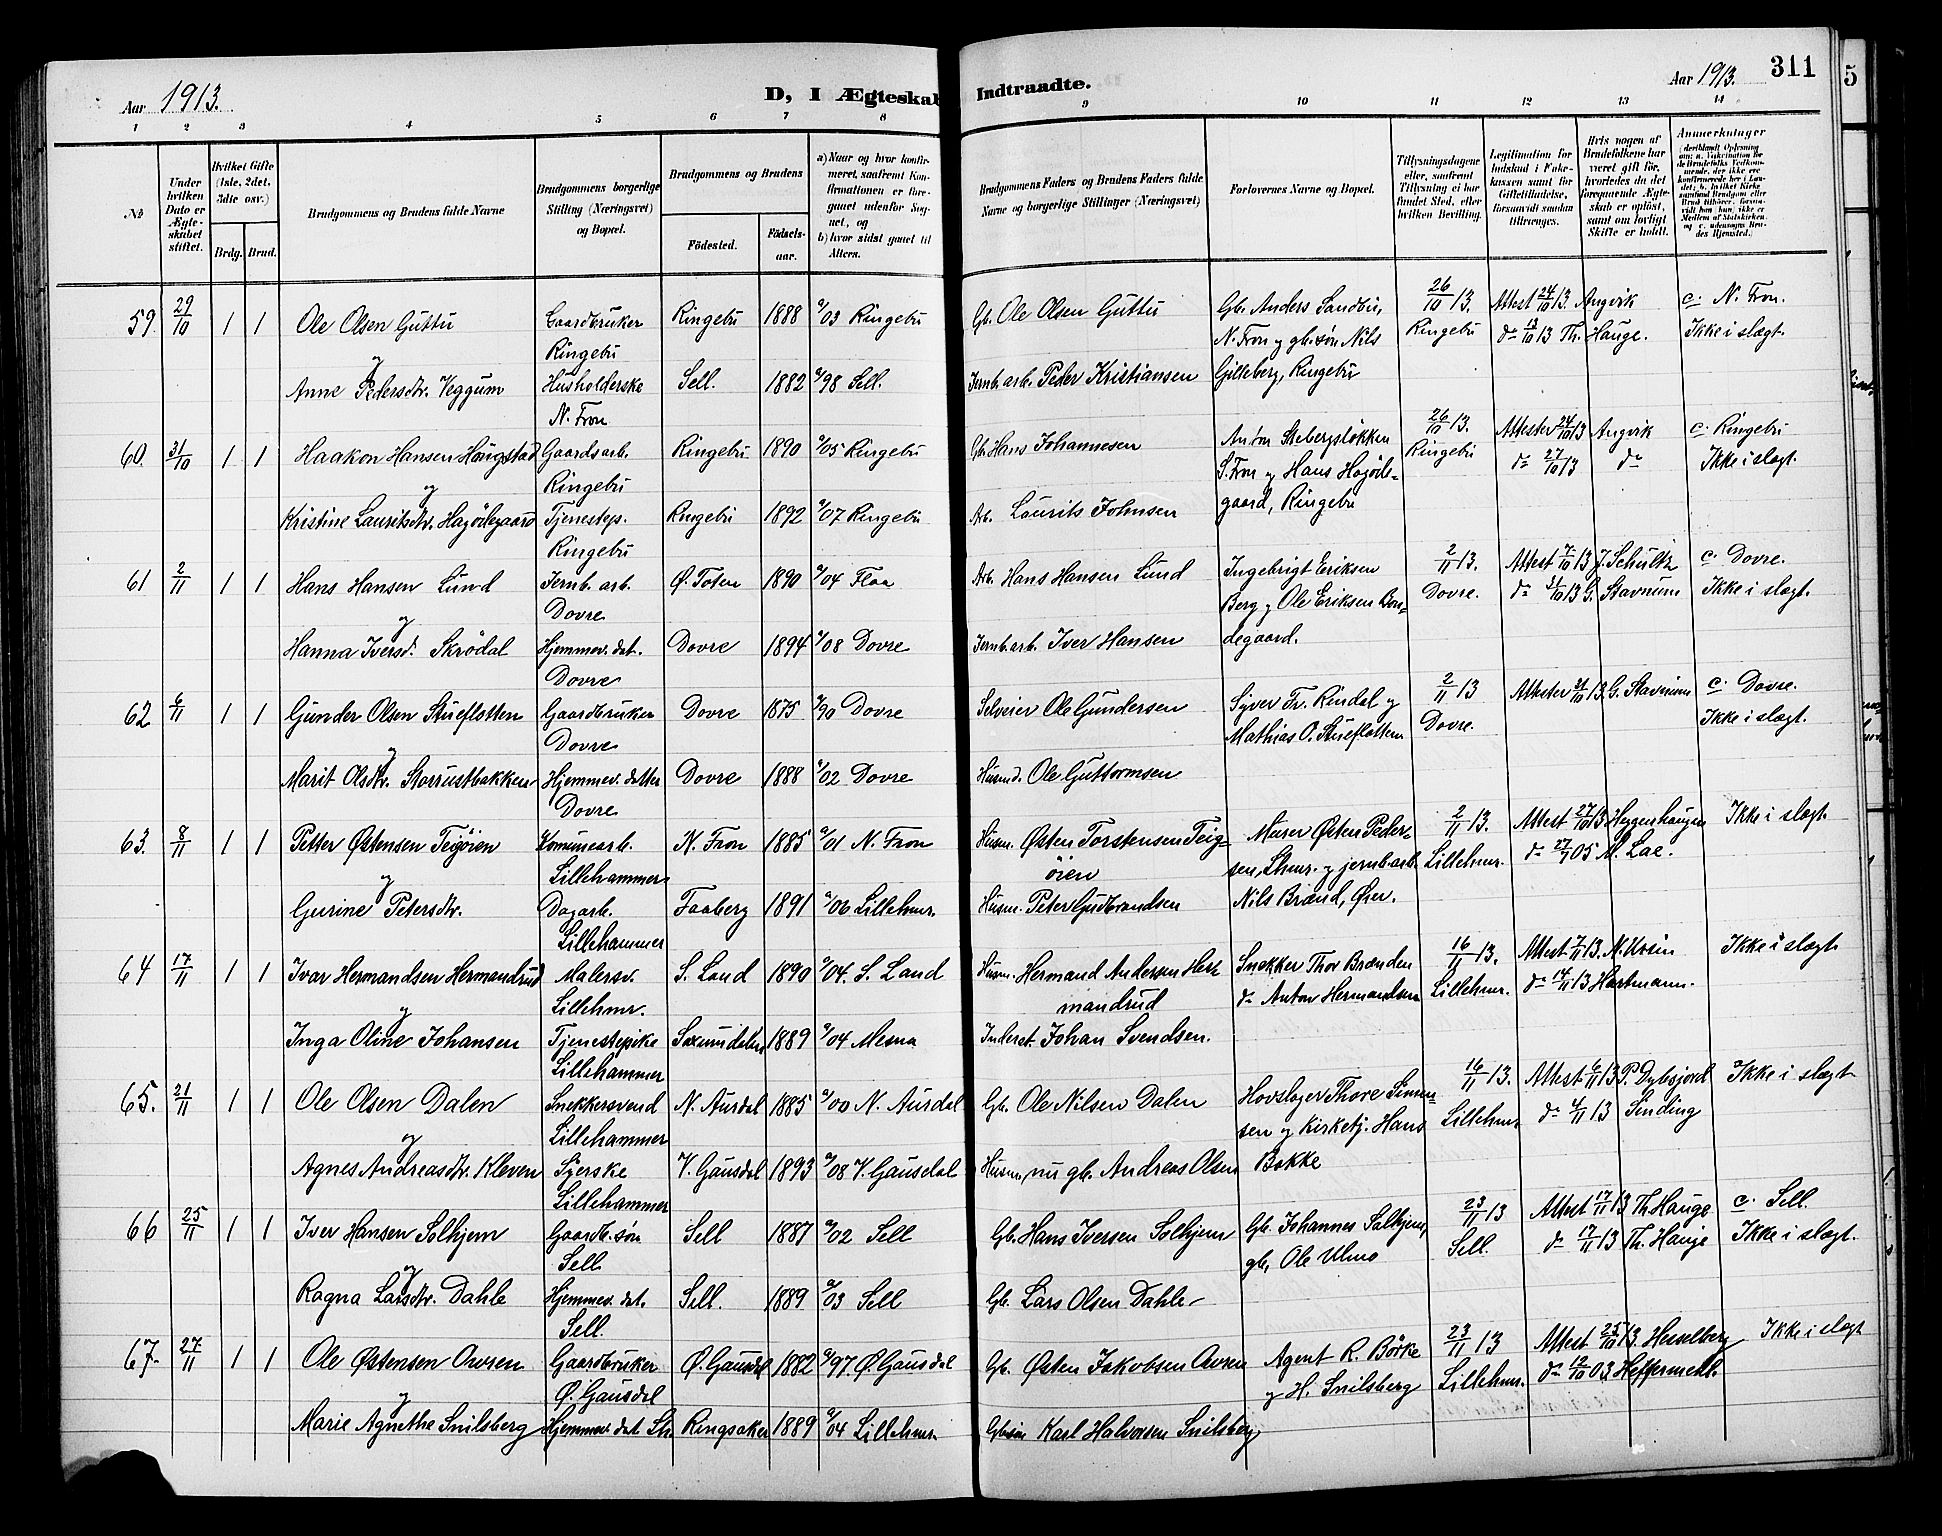 Aar 1913.
D, I Ægteskab Indtraadte.
Aar 1913.
311
5
1 2 3 4 5 6 7 8 9 10 11 12 13 14
No
Under hvilken Dato er Ægteskabet stiftet.
Hvilket Gifte (1ste, 2det, 3die osv.)
Brdg. Brud.
Brudgommens og Brudens fulde Navne
Brudgommens borgerlige Stilling (Næringsvei) og Bopæl.
Brudgommens og Brudens
Fødested.
Fødselsaar.
a) Naar og hvor konfirmeret, saafremt Konfirmationen er foregaaet udenfor Sognet, og
b) hvor sidst gaaet til Alters.
Brudgommens Faders og Brudens Faders fulde Navne og borgerlige Stillinger (Næringsvei)
Forlovernes Navne og Bopæl.
Tillysningsdagene eller, saafremt Tillysning ei har fundet Sted, efter hvilken Bevilling.
Legitimation for Indskud i Fakskassen samt for Giftetilladelse, forsaavidt saadan tiltrænges.
Hvis nogen af Brudefolkene har været gift før, hvorledes da det foregaaende Ægteskab er opløst, samt om lovligt Skifte er holdt.
Anmerkninger
59. 29/10 1 1 Ole Olsen Guttu Gaardbruker Ringebu 1888 a/03 Ringebu Gb. Ole Olsen Guttu Gb. Anders Sandbu, 26/10 13. Attest 24/10 13. Angvik c. N. Fron.
og Ringebu N. Fron og gb. søn Nils Ringebu do 13 Th. Hauge. Ikke i slægt.
Anne Pedersdtr. Veggum Husholderske Sell. 1882 a/98 Sell. Jernb. arb. Peder Kristiansen Gilleberg, Ringebu
N. Fron
60. 31/10 1 1 Haakon Hansen Haugstad Gaardsarb. Ringebu 1890 a/05 Ringebu Gb. Hans Johannesen Anton Stebergsløkken 26/10 13. Attester 24/10 13 Angvik c. Ringebu
og Ringebu S. Fron og Hans Hagøds- Ringebu do 27/10 13 do Ikke i slægt.
Kristine Lauritsdtr. Hagødegaard Tjenestep. Ringebu 1892 a/07 Ringebu Arb. Laurits Johnsen gaard, Ringebu
Ringebu
61 2/11 1 1 Hans Hansen Lund Jernb. arb. Ø. Toten 1890 a/04 Flaa Arb. Hans Hansen Lund Ingebrigt Eriksen 2/11 13. Attest 7/10 13 J. Schultz c. Dovre.
og Dovre Berg og Ole Eriksen Bon- Dovre. do 31/10 13 G. Stavnum Ikke i slægt.
Hanna Iversd. Skrødal Hjemmev. dat. Dovre 1894 a/08 Dovre Jernb. arb. Iver Hansen degaard.
Dovre
62 6/11 1 1 Gunder Olsen Stueflotten Gaardbruker Dovre 1875 a/90 Dovre Selveier Ole Gundersen Syver Fr. Rindal og 2/11 13 Attester 31/10 13 G. Stavnum c. Dovre.
og Dovre Mathias O. Stueflotten Dovre. Ikke i slægt.
Marit Olsdtr. Storrustbakken Hjemmev. datter Dovre 1888 a/02 Dovre Husmd. Ole Guttormsen
Dovre
63. 8/11 1 1 Petter Østensen Teigøien Komunearb. N. Fron 1885 a/01 N. Fron Husm. Østen Torstensen Teig- Murer Østen Peder- 2/11 13. Attest 27/10 13 Heggenhaugen Ikke i slægt.
og Lillehammer øien sen, Lhmr. og jernb. arb. Lillehmr. do 27/7 05 M. Lae.
Gurine Petersdtr. Dagarb. Faaberg 1891 a/06 Lillehmr. Husm. Peter Gudbrandsen Nils Brænd, Øier.
Lillehammer
64 17/11 1 1 Ivar Hermandsen Hermandrud Malersv. S. Land 1890 a/04. S. Land Husm. Hermand Andersen Her- Snekker Thor Brænden 16/11 13. Attest 7/11 13. N. Ursin Ikke i slægt
og Lillehmr. mandrud do Anton Hermandsen Lillehmr. do 14/11 13 Hartmann.
Inga Oline Johansen Tjenestepike Saxumdalen 1889 a/04 Mesna Inderst Johan Svendsen.
Lillehammer
65. 21/11 1 1 Ole Olsen Dalen Snekkersvend N. Aurdal 1885 a/00 N. Aurdal Gb. Ole Nilsen Dalen Hovslager Thore Simen- 16/11 13. Attest 6/11 13 P. Dybsjord Ikke i slægt
og Lillehammer sen og Kirketj. Hans Lillehmr. do 4/11 13 Sinding
Agnes Andreasdtr. Kleven Syerske V. Gausdal 1893 a/08 V. Gausdal Husm., nu gb. Andreas Olsen Bakke
Lillehammer
66 25/11 1 1 Iver Hansen Solhjem Gaardb. søn Sell 1887 a/02 Sell Gb. Hans Iversen Solhjem Gb. Johannes Solhjem, 23/11 13 Attest 17/11 13 Th. Hauge c. Sell.
og Sell. gb. Ole Ulmo Sell. do 17/11 13 Th. Hauge Ikke i slægt.
Ragna Larsdtr. Dahle Hjemmev. dat. Sell. 1889 a/03 Sell Gb. Lars Olsen Dahle
Sell.
67. 27/11 1 1 Ole Østensen Owren Gaardbruker Ø. Gausdal 1882 a/97 Ø. Gausdal Gb. Østen Jakobsen Owren Agent R. Börke 23/11 13 Attest 25/10 13. Hesselberg Ikke i slægt
og Ø. Gausdal og H. Snilsberg Lillehmr. do 12/10 03 Heffermehl.
Marie Agnethe Snilsberg Hjemmev. dat Lh. Ringsaker 1889 a/04 Lillehmr. Gbsøn Karl Halvorsen Snilsberg